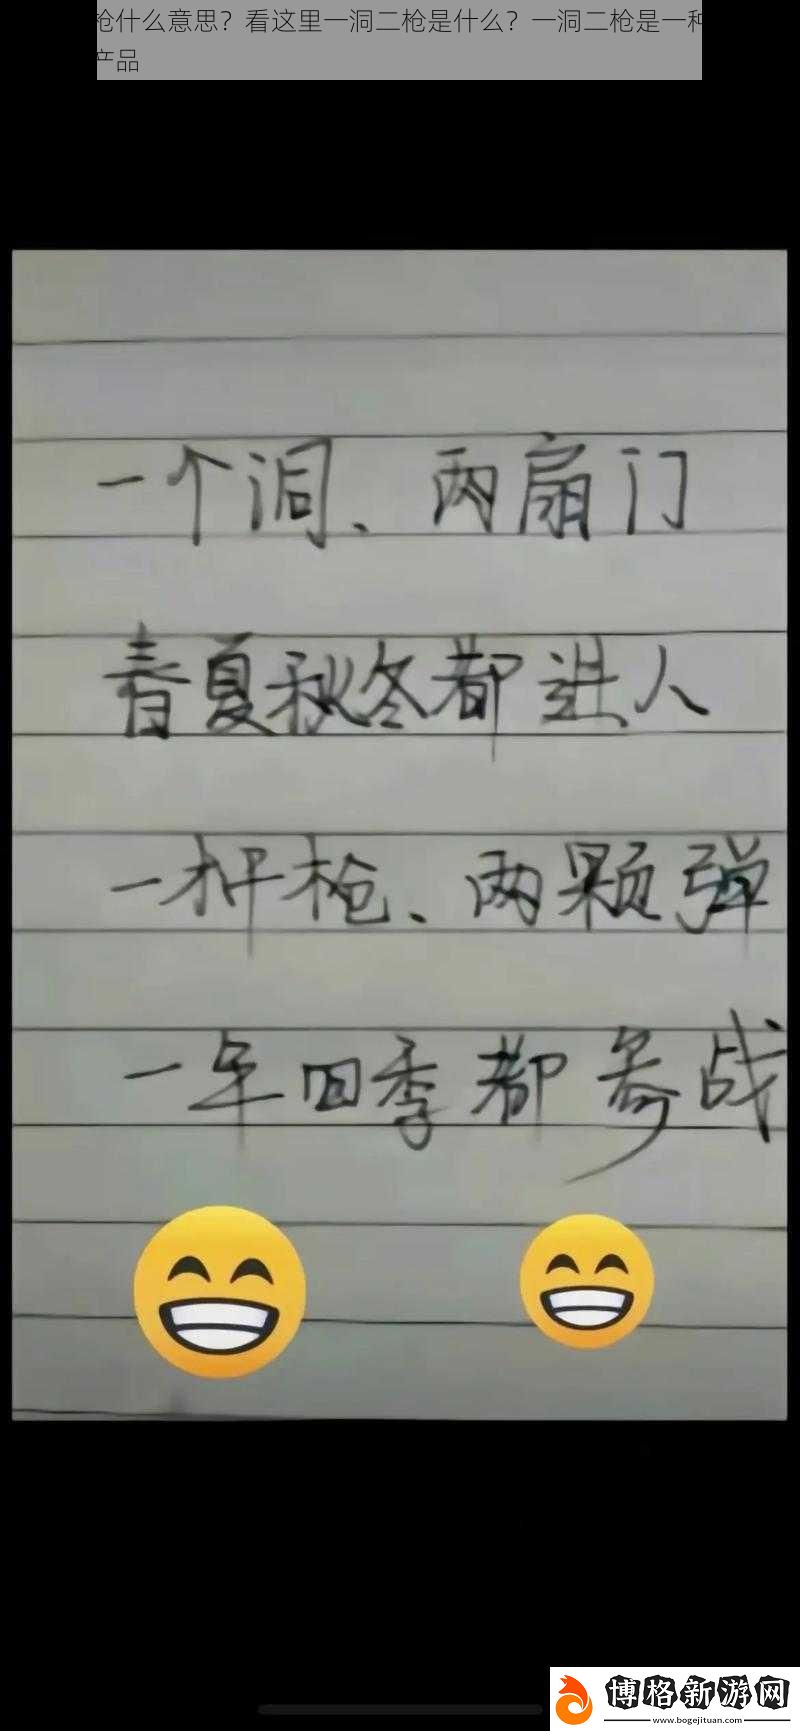 枪什么意思？看这里一洞二枪是什么？一洞二枪是一种
产品
一个洞、两扇门
春夏秋冬都进人
一杆枪、两颗弹
一年四季都参战
博格新游网
www.bogejituan.com